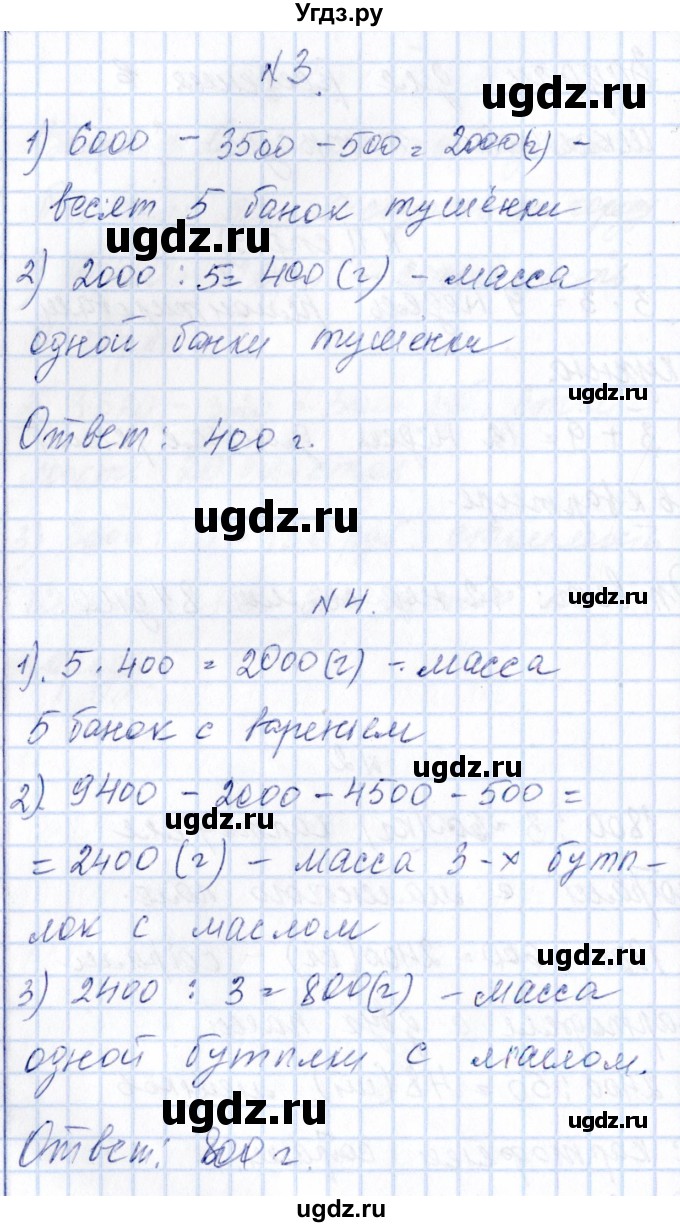 Угдз.ру
N 3.
ugdz.ru
1) 6000 - 3500 - 500 = 2000(г) -
весят 5 банок тушёнки
ugdz.ru
2) 2000 : 5 = 400 (г) - масса
одной банки тушёнки
ugdz.ru
Ответ: 400 г.
ugdz.ru
N 4.
ugdz.ru
1). 5 · 400 = 2000(г) - масса
5 банок с вареньем
ugdz.ru
2) 9400 - 2000 - 4500 - 500 =
ugdz.ru
= 2400 (г) - масса 3-х буты-
лок с маслом
ugdz.ru
3) 2400 : 3 = 800(г) - масса
одной бутылки с маслом.
ugdz.ru
ugdz.ru
Ответ: 800 г.
ugdz.ru